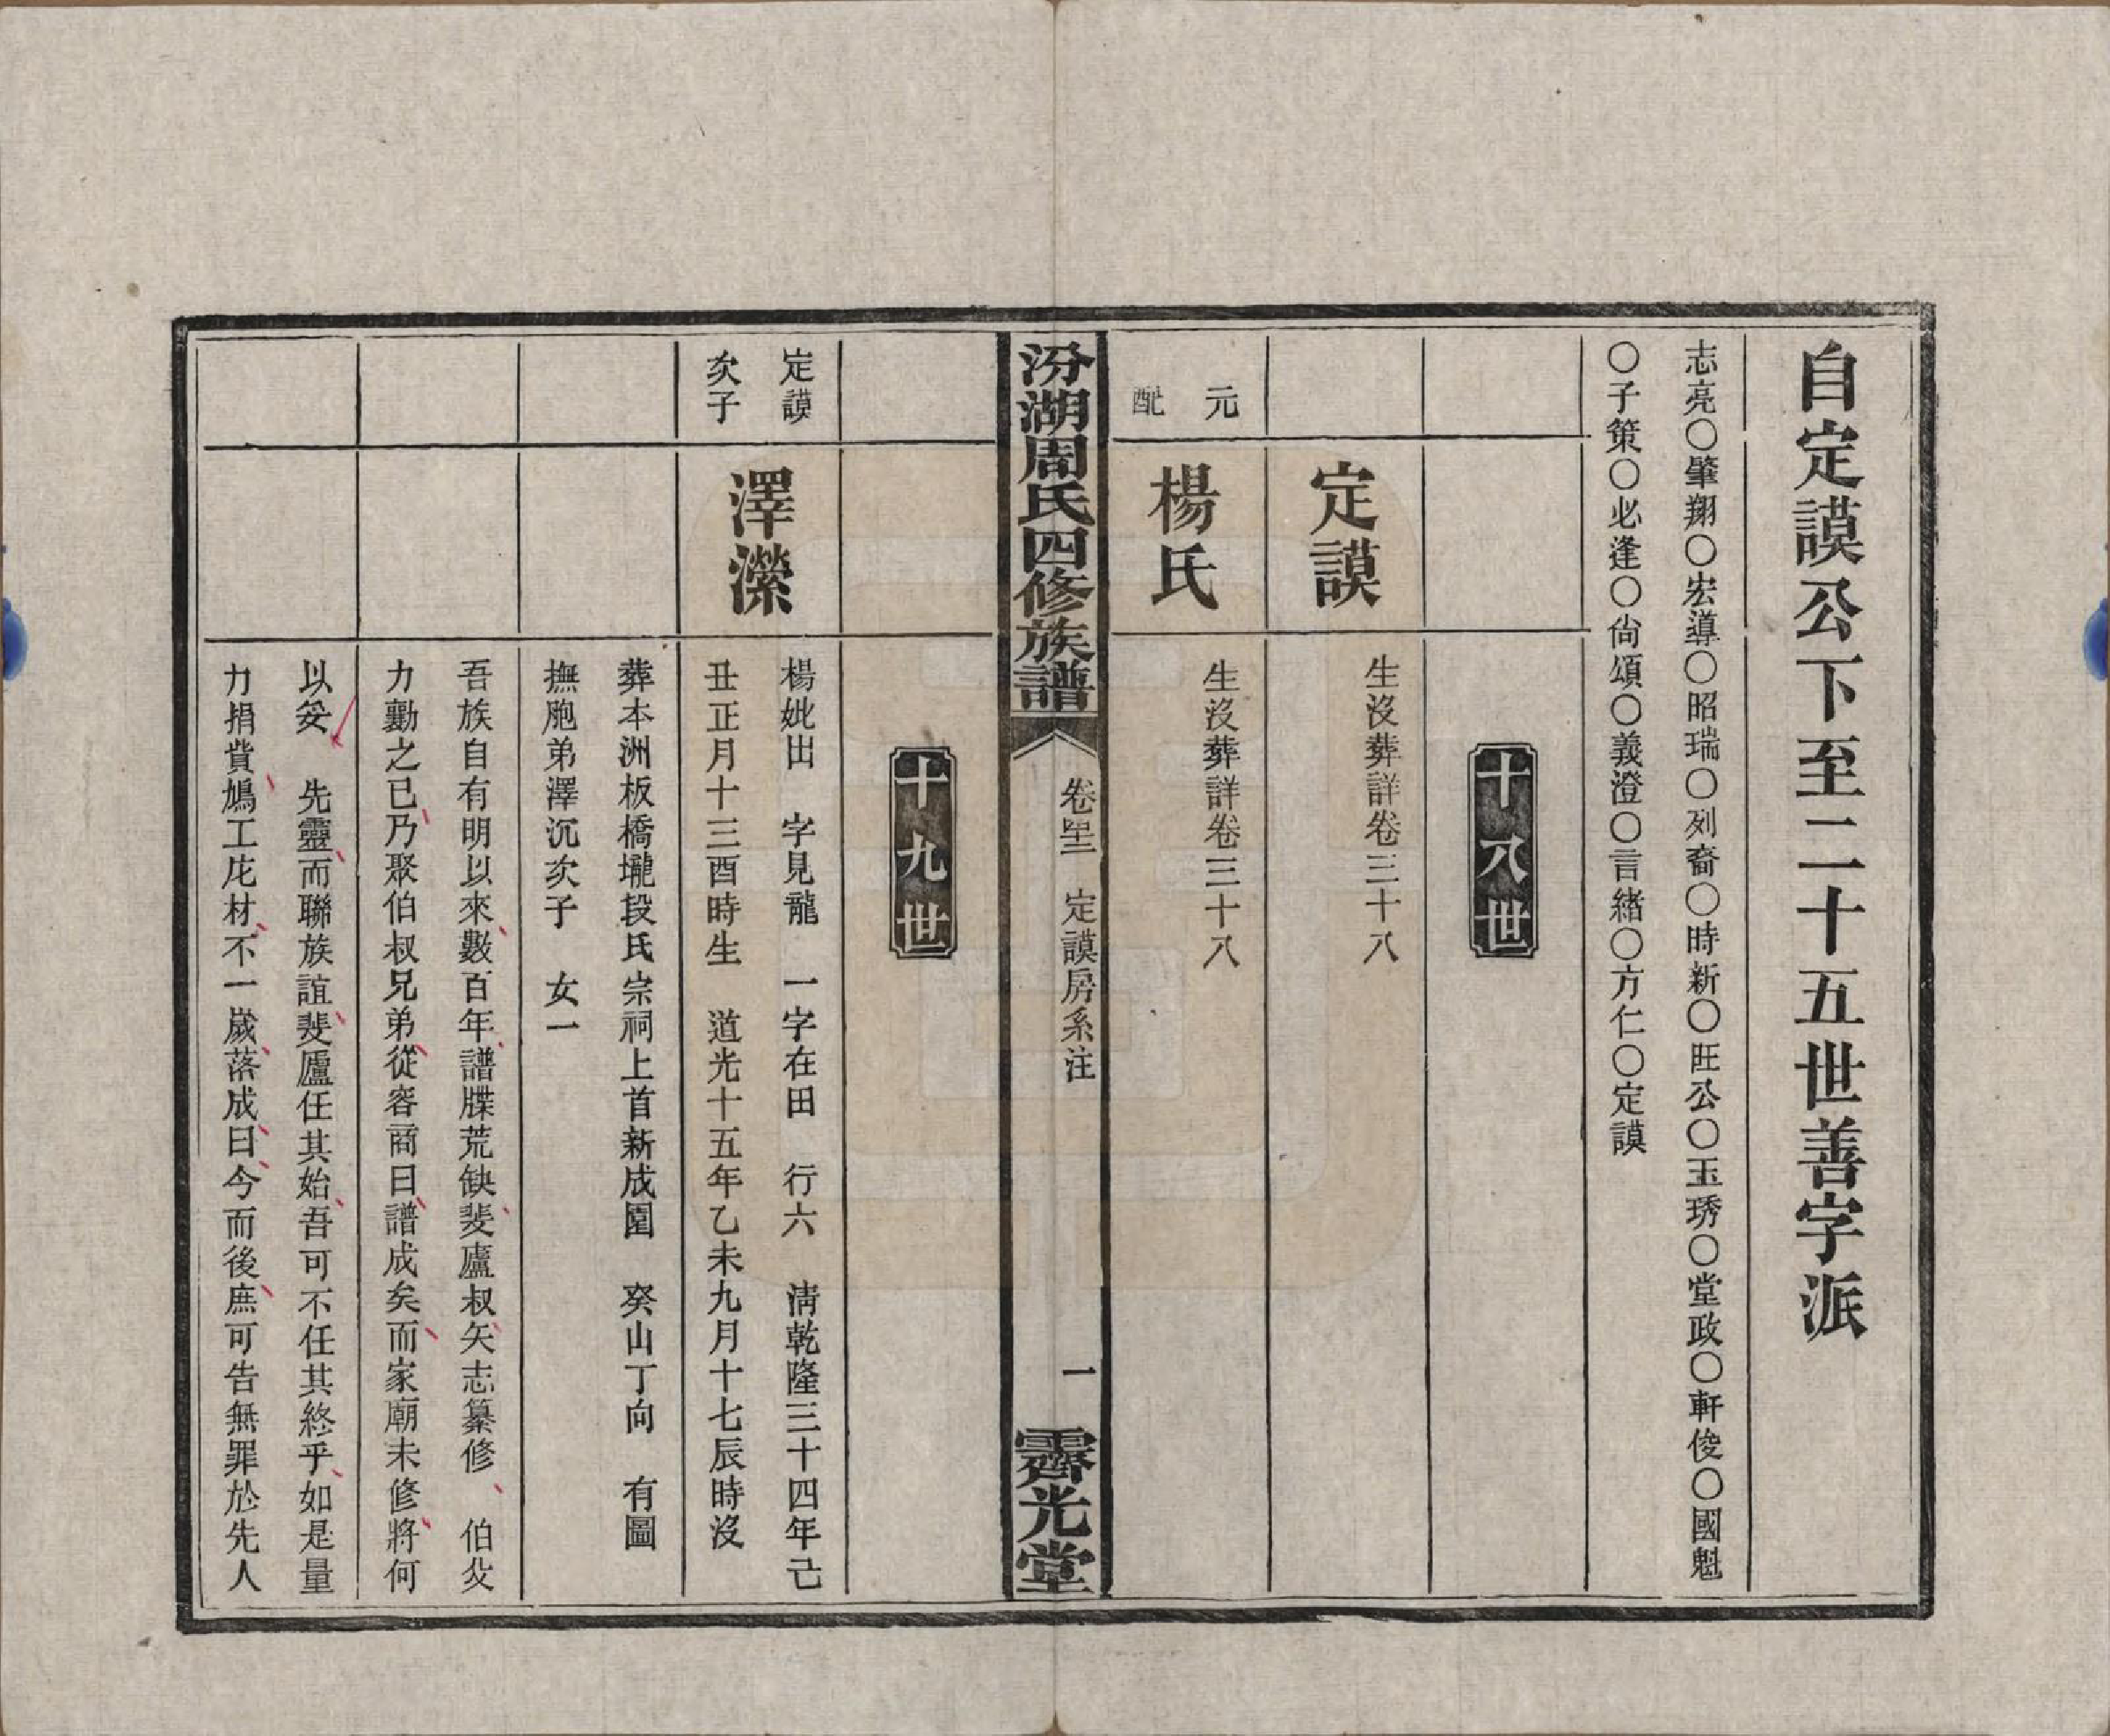 自定謨公下至二十五世善字派
志亮〇肇翔〇宏導〇昭瑞〇列裔〇時新〇旺公〇玉琇〇堂政〇軒俊〇國魁
〇子策〇必逢〇尙頌〇義澄〇言緒〇方仁〇定謨
十八世
定謨
生沒葬詳卷三十八
元配
楊氏
生沒葬詳卷三十八
汾湖周氏四修族譜
卷四十二 定謨房系注
一
霽光堂
十九世
定謨
次子
澤瀠
楊妣出 字見龍 一字在田 行六 清乾隆三十四年己
丑正月十三酉時生 道光十五年乙未九月十七辰時沒
葬本洲板橋壠段氏宗祠上首新成園 癸山丁向 有圖
撫胞弟澤沉次子 女一
吾族自有明以來數百年譜牒荒缺斐廬叔矢志纂修 伯父
力勷之已乃聚伯叔兄弟從容商曰譜成矣而家廟未修將何
以妥 先靈而聯族誼斐廬任其始吾可不任其終乎如是量
力捐貲鳩工庀材不一歲落成曰今而後庶可告無罪於先人